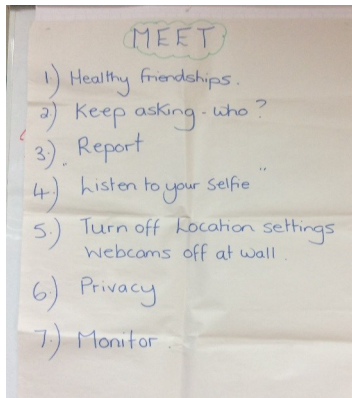 MEET
1) Healthy friendships.
2) Keep asking - who?
3). Report
4.) Listen to your selfie
5.) Turn off Location settings
Webcams off at wall.
6.) Privacy
7.) Monitor.